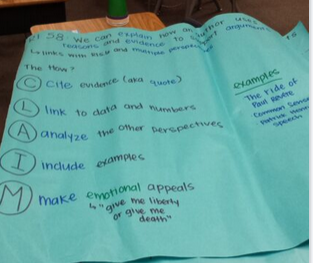 5.8 We can explain how an author uses
reasons and evidence to support arguments
↳ links with and multiple
The How?
C Cite evidence (aka quote)
L link to data and numbers
A analyze the other perspectives
I include examples
M make emotional appeals
↳ "give me liberty
or give me
death"
examples
The ride of
Paul Revere
Common Sense
Patrick Henry
speech